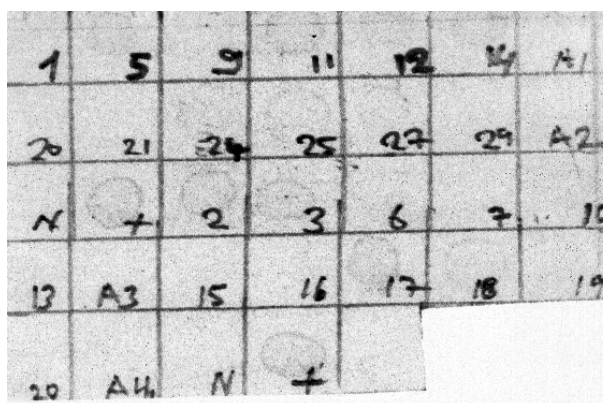 1 5 9 11 12 14 A1
20 21 24 25 27 29 A2
N + 2 3 6 7 10
13 A3 15 16 17 18 19
20 A4 N +